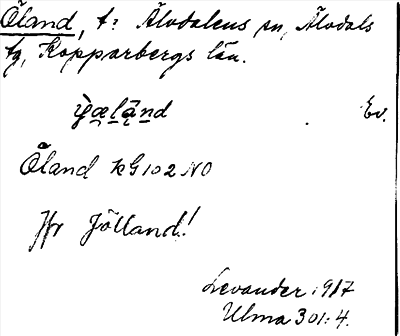 Öland, t: Älvdalens sn, Älvdals
tg, Kopparbergs län.
Ev.
Öland KG 102 NO
Jfr Jölland!
Levander 1917
Ulma 301:4.